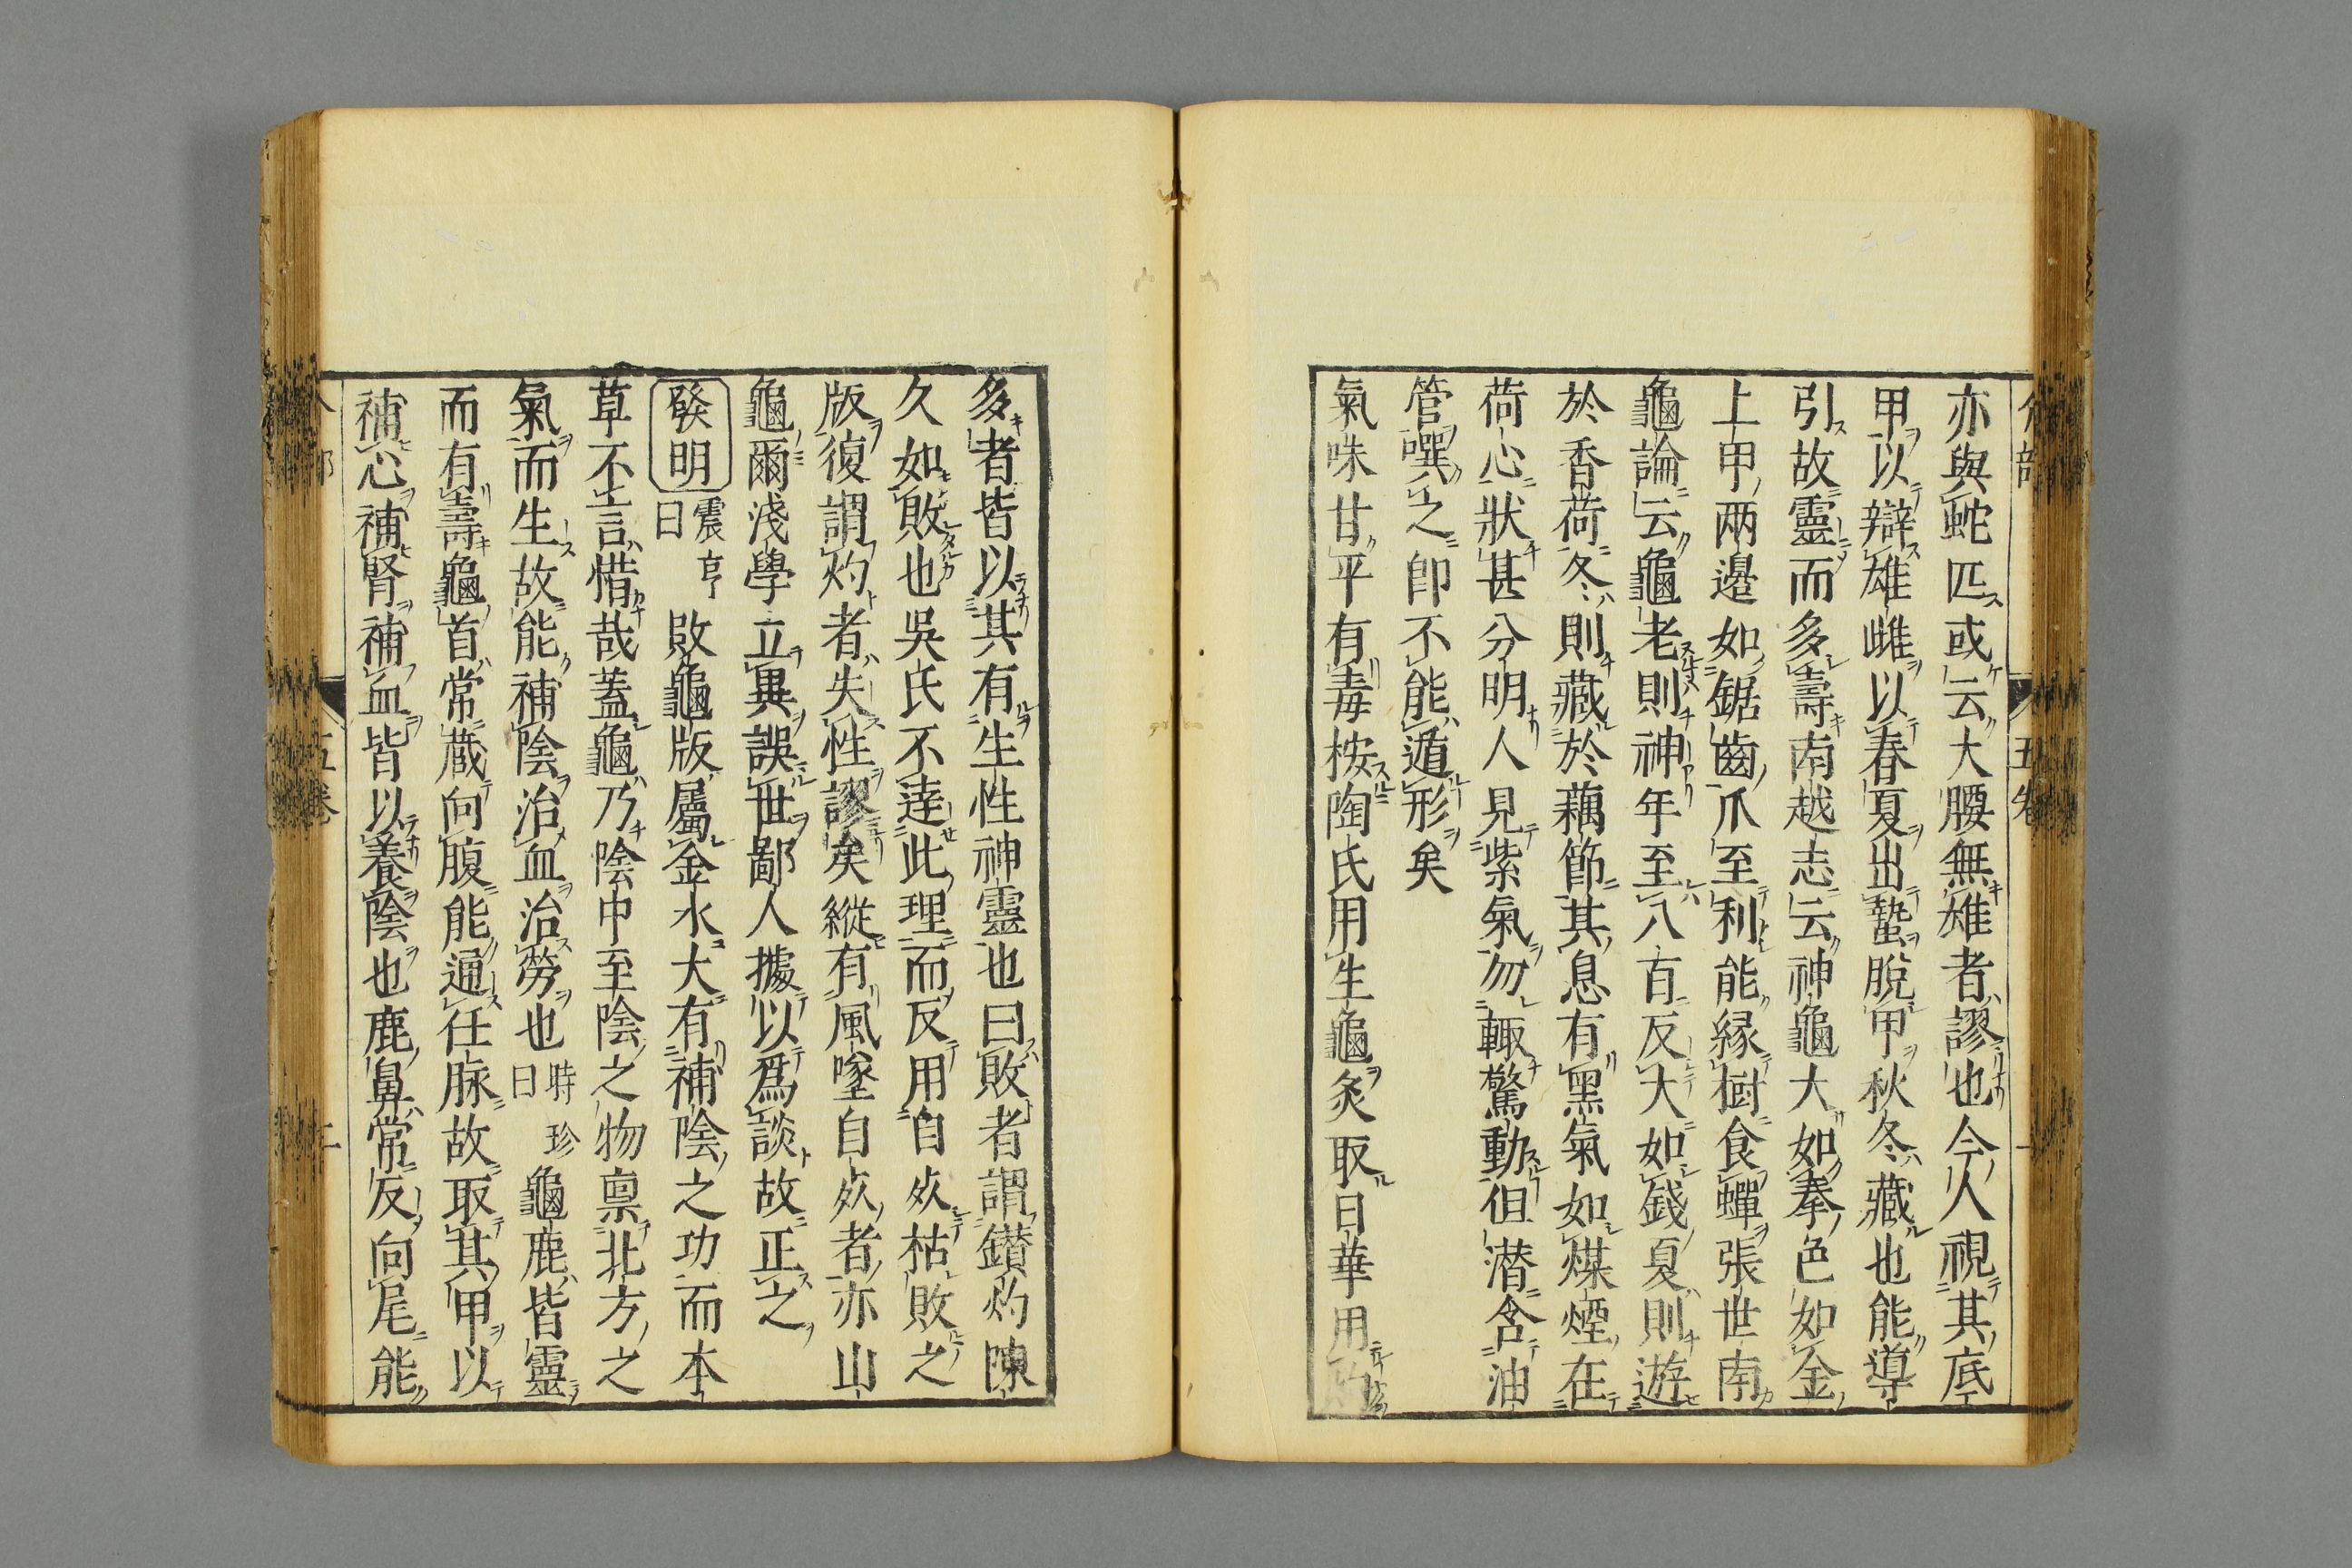 亦與蛇匹或云大腰無雄者謬也今人視其底
甲以辯雄雌以春夏出蟄脫甲秋冬藏也能導
引故靈而多壽南越志云神龜大如拳色如金
上甲兩邊如鋸齒爪至利能緣樹食蟬張世南
龜論云龜老則神年至八百反大如錢夏則遊
於香荷冬則藏於藕節其息有黑氣如煤煙在
荷心狀甚分明人見紫氣勿輙驚動但潛含油
管噀之卽不能遁形矣
氣味甘平有毒桉陶氏用生龜炙取日華用
多者皆以其有生性神靈也曰敗者謂鑚灼陳
久如敗也吳氏不逹此理而反用自㸃枯敗之
版復謂灼者失性謬矣縱有風墜自㸃者亦山
龜爾淺學立異誤世鄙人據以爲談故正之
發明 震亨曰 敗龜版屬金水大有補陰之功而本
草不言惜哉蓋龜乃陰中至陰之物稟北方之
氣而生故能補陰治血治勞也 時珍曰 龜鹿皆靈
而有壽龜首常藏向腹能通任脉故取其甲以
補心補腎補血皆以養陰也鹿鼻常反向尾能